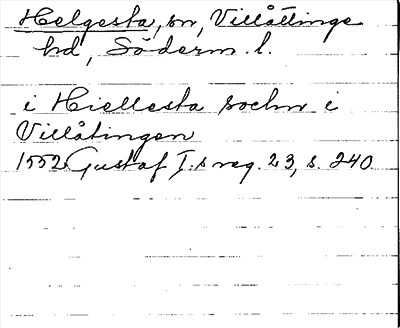 Helgesta, sn, Villåttinge
hd, Söderm. l.
i Hiellesta sochn i
Villåtingen
1552 Gustaf I:s reg. 23, s. 240